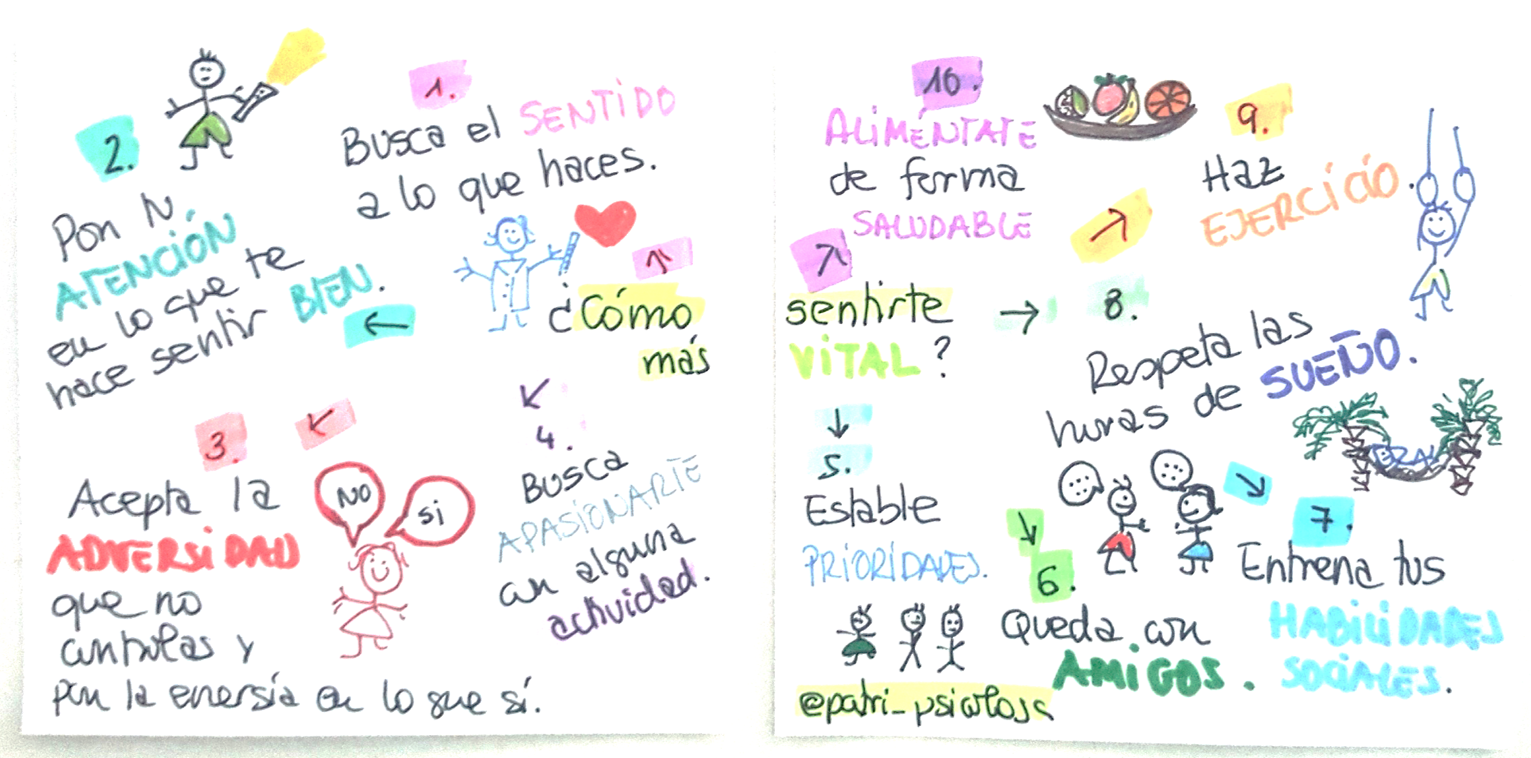 1.
Busca el SENTIDO
a lo que haces.
2.
Pon tu
ATENCIÓN
en lo que te
hace sentir BIEN.
¿Cómo
más
3.
Acepta la
ADVERSIDAD
que no
controlas y
pon la energía en lo que sí.
NO
Si
4.
Busca
APASIONARTE
con alguna
actividad.
10.
ALIMÉNTATE
de forma
SALUDABLE
9.
Haz
EJERCICIO.
sentirte
VITAL?
8.
Respeta las
horas de SUEÑO.
5.
Estable
PRIORIDADES.
6.
Queda con
AMIGOS.
7.
Entrena tus
HABILIDADES
SOCIALES.
@patri_psicologa